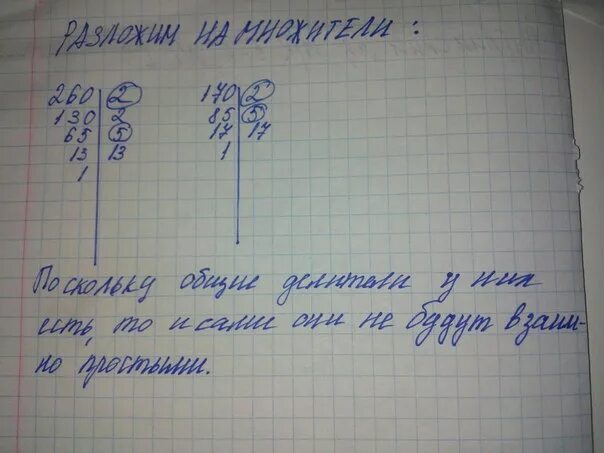 РАЗЛОЖИМ НА МНОЖИТЕЛИ:
260 | 2 170 | 2
130 | 2 85 | 5
65 | 5 17 | 17
13 | 13 1
1
Поскольку общие делители у них
есть, то и сами они не будут взаим-
но простыми.